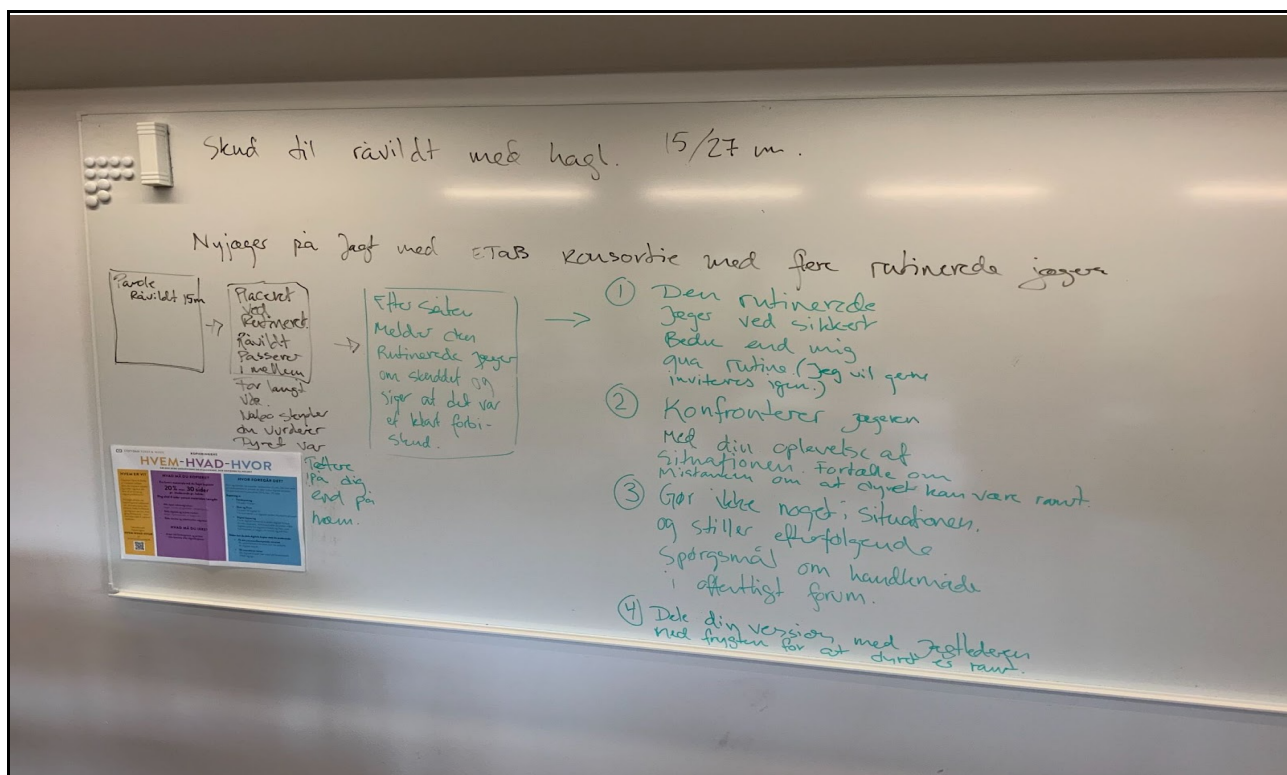 Skud til råvildt med hagl. 15/27 m.
Nyjæger på Jagt med ETaB Konsortie med flere rutinerede jægere
Parole
Råvildt 15m
Placeret
ved
Rutineret.
Råvildt
Passerer
i mellem
For langt
væk.
Nabo skyder
du vurderer
Dyret var
Tættere
på dig
end på
ham.
Efter såten
Melder den
Rutinerede Jæger
om skuddet og
siger at det var
et klart forbi-
skud.
① Den rutinerede
Jæger ved sikkert
Bedre end mig
qua rutine (Jeg vil gerne
inviteres igen.)
② Konfronterer jægeren
Med din oplevelse af
Situationen. Fortælle om
Mistanken om at dyret kan være ramt.
③ Gør ikke noget i situationen.
og stiller efterfølgende
Spørgsmål om handlemåde
i offentligt forum.
④ Dele din version med Jagtlederen
med frygten for at dyret er ramt.
HVEM-HVAD-HVOR